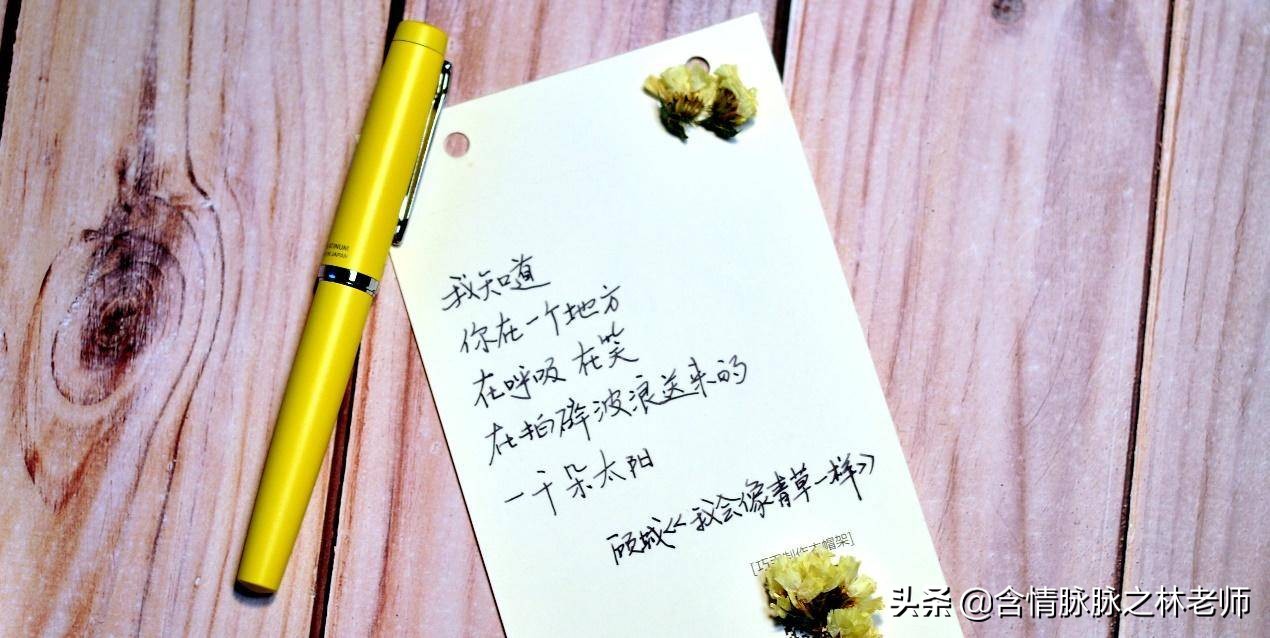 PLATINUM
JAPAN
我知道
你在一个地方
在呼吸 在笑
在拍碎波浪送来的
一千朵太阳
顾城《我会像青草一样》
帽架]
头条 @含情脉脉之林老师